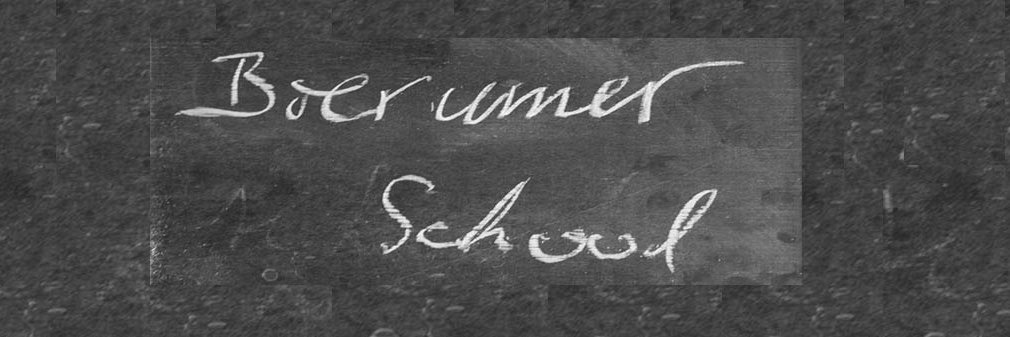 Boerumer
School